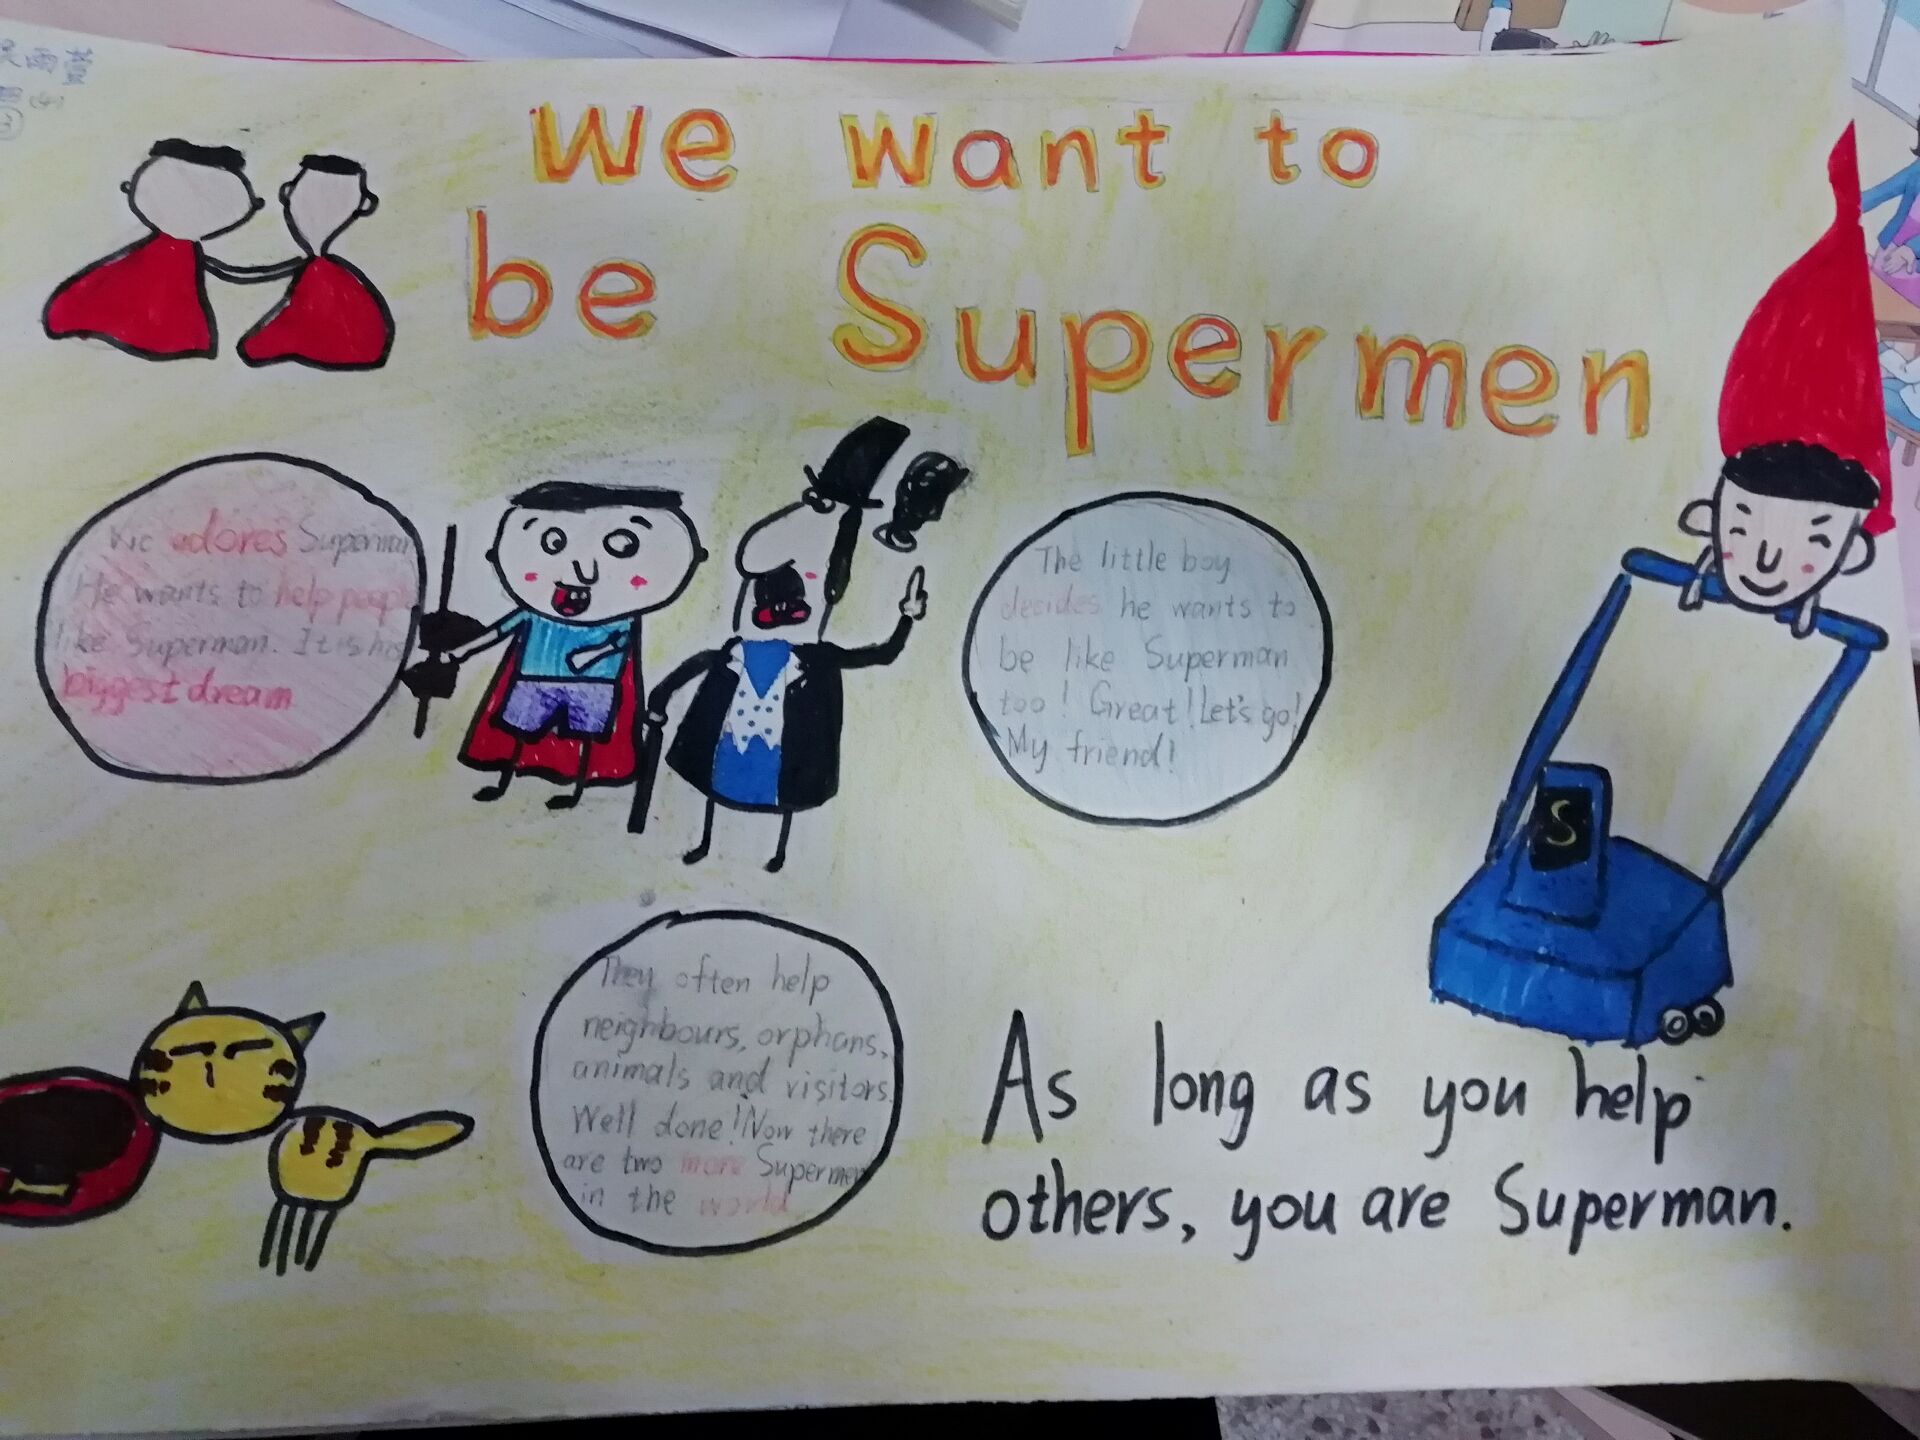 雨萱
(4)
3
We want to
be Supermen
Vic adores Superman
He wants to help people
like Superman. It is his
biggest dream
The little boy
decides he wants to
be like Superman
too! Great! Let's go!
My friend!
S
They often help
neighbours, orphans,
animals and visitors.
Well done! Now there
are two more Supermen
in the world
As long as you help
others, you are Superman.